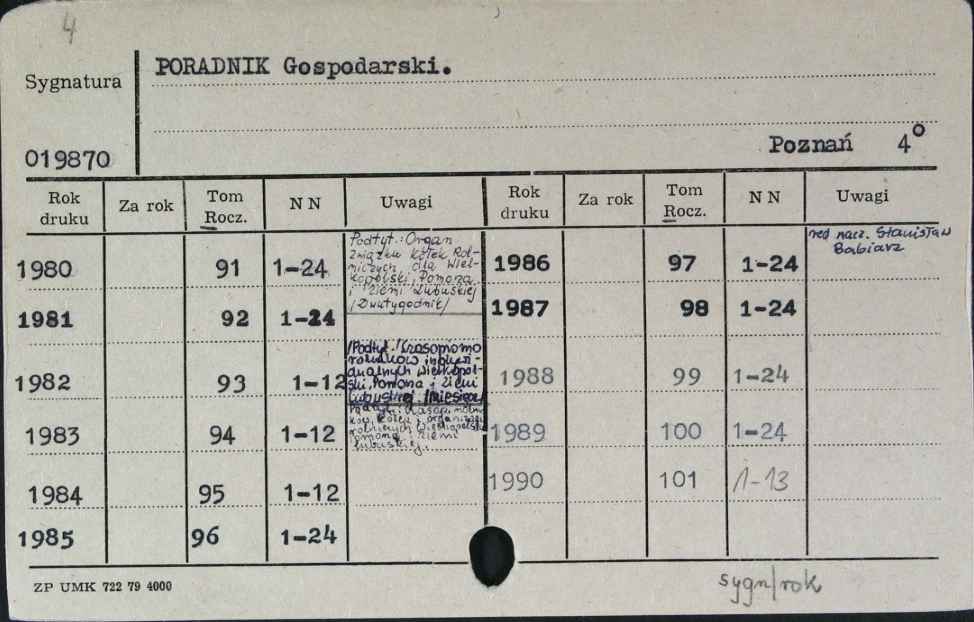 4
Sygnatura
PORADNIK Gospodarski.
019870
Poznań 4°
Rok druku Za rok Tom Rocz. NN Uwagi Rok druku Za rok Tom Rocz. NN Uwagi
1980 91 1-24
Podtyt.: Organ
Związku Kółek Rol-
niczych dla Wiel-
kopolski, Pomorza
i Ziemi Lubuskiej
/Dwutygodnik/
1981 92 1-24
1982 93 1-12
/Podtyt.: Czasopismo
rolników indywi-
dualnych Wielkopol-
ski, Pomorza i Ziemi
Lubuskiej /miesięcz/
1983 94 1-12
Kółek i organizacji
rolniczych Wielkopolski
Pomorza i Ziemi
Lubuskiej.
1984 95 1-12
1985 96 1-24
1986 97 1-24
red. nacz. Stanisław
Babiarz
1987 98 1-24
1988 99 1-24
1989 100 1-24
1990 101 1-13
ZP UMK 722 79 4000
sygn/rok